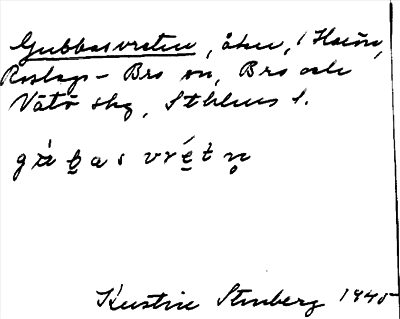 Gubbasvreten, åker, Hacin,
Roslags-Bro sn, Bro och
Vätö skg, Sthlms l.
gubas vretn
Kerstin Stenberg 1945